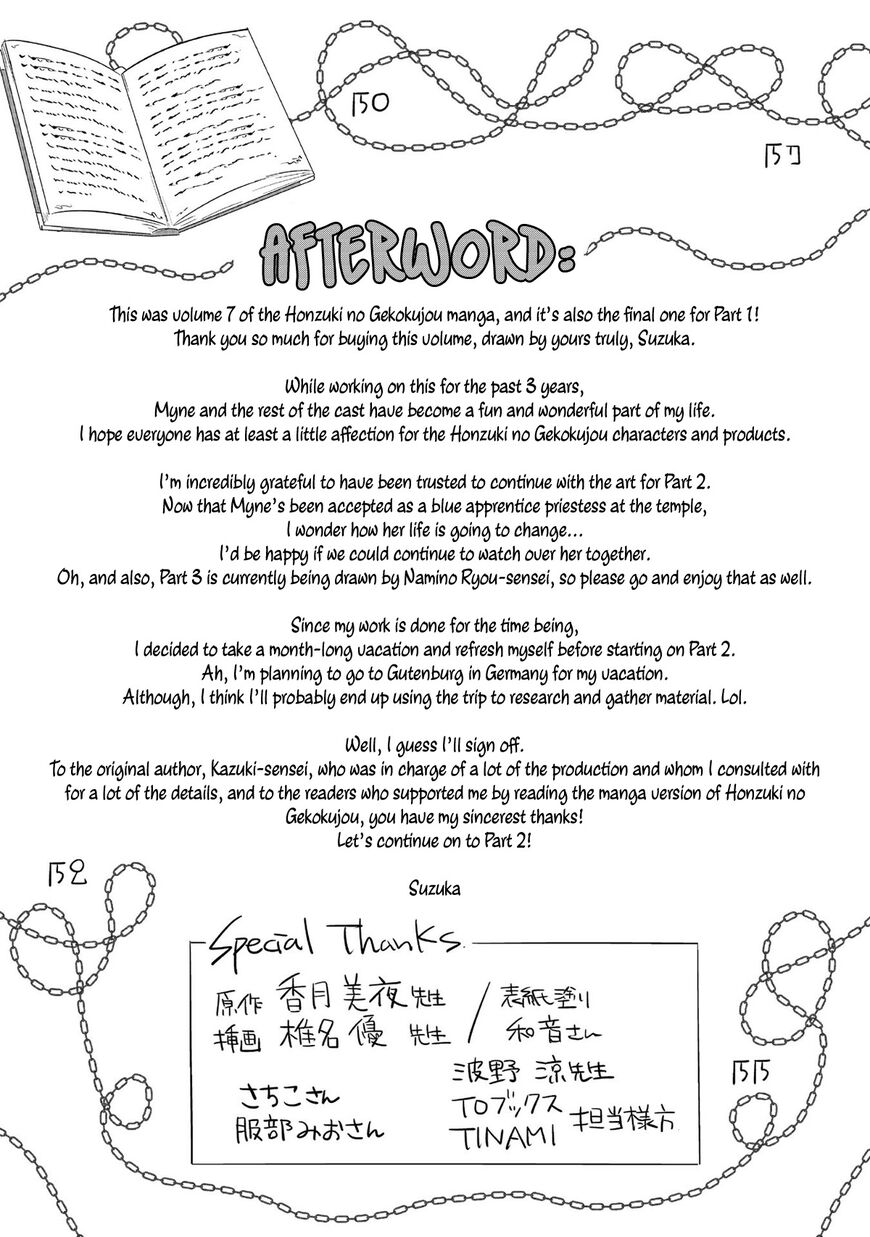 AFTERWORD:
This was volume 7 of the Honzuki no Gekokujou manga, and it's also the final one for Part 1!
Thank you so much for buying this volume, drawn by yours truly, Suzuka.
While working on this for the past 3 years,
Myne and the rest of the cast have become a fun and wonderful part of my life.
I hope everyone has at least a little affection for the Honzuki no Gekokujou characters and products.
I'm incredibly grateful to have been trusted to continue with the art for Part 2.
Now that Myne's been accepted as a blue apprentice priestess at the temple,
I wonder how her life is going to change...
I'd be happy if we could continue to watch over her together.
Oh, and also, Part 3 is currently being drawn by Namino Ryou-sensei, so please go and enjoy that as well.
Since my work is done for the time being,
I decided to take a month-long vacation and refresh myself before starting on Part 2.
Ah, I'm planning to go to Gutenburg in Germany for my vacation.
Although, I think I'll probably end up using the trip to research and gather material. Lol.
Well, I guess I'll sign off.
To the original author, Kazuki-sensei, who was in charge of a lot of the production and whom I consulted with
for a lot of the details, and to the readers who supported me by reading the manga version of Honzuki no
Gekokujou, you have my sincerest thanks!
Let's continue on to Part 2!
Suzuka
Special Thanks
原作 香月美夜先生 / 表紙塗り
挿画 椎名優 先生 / 和音さん
さちこさん
服部みおさん
波野 涼先生
TOブックス
TINAMI
担当様方